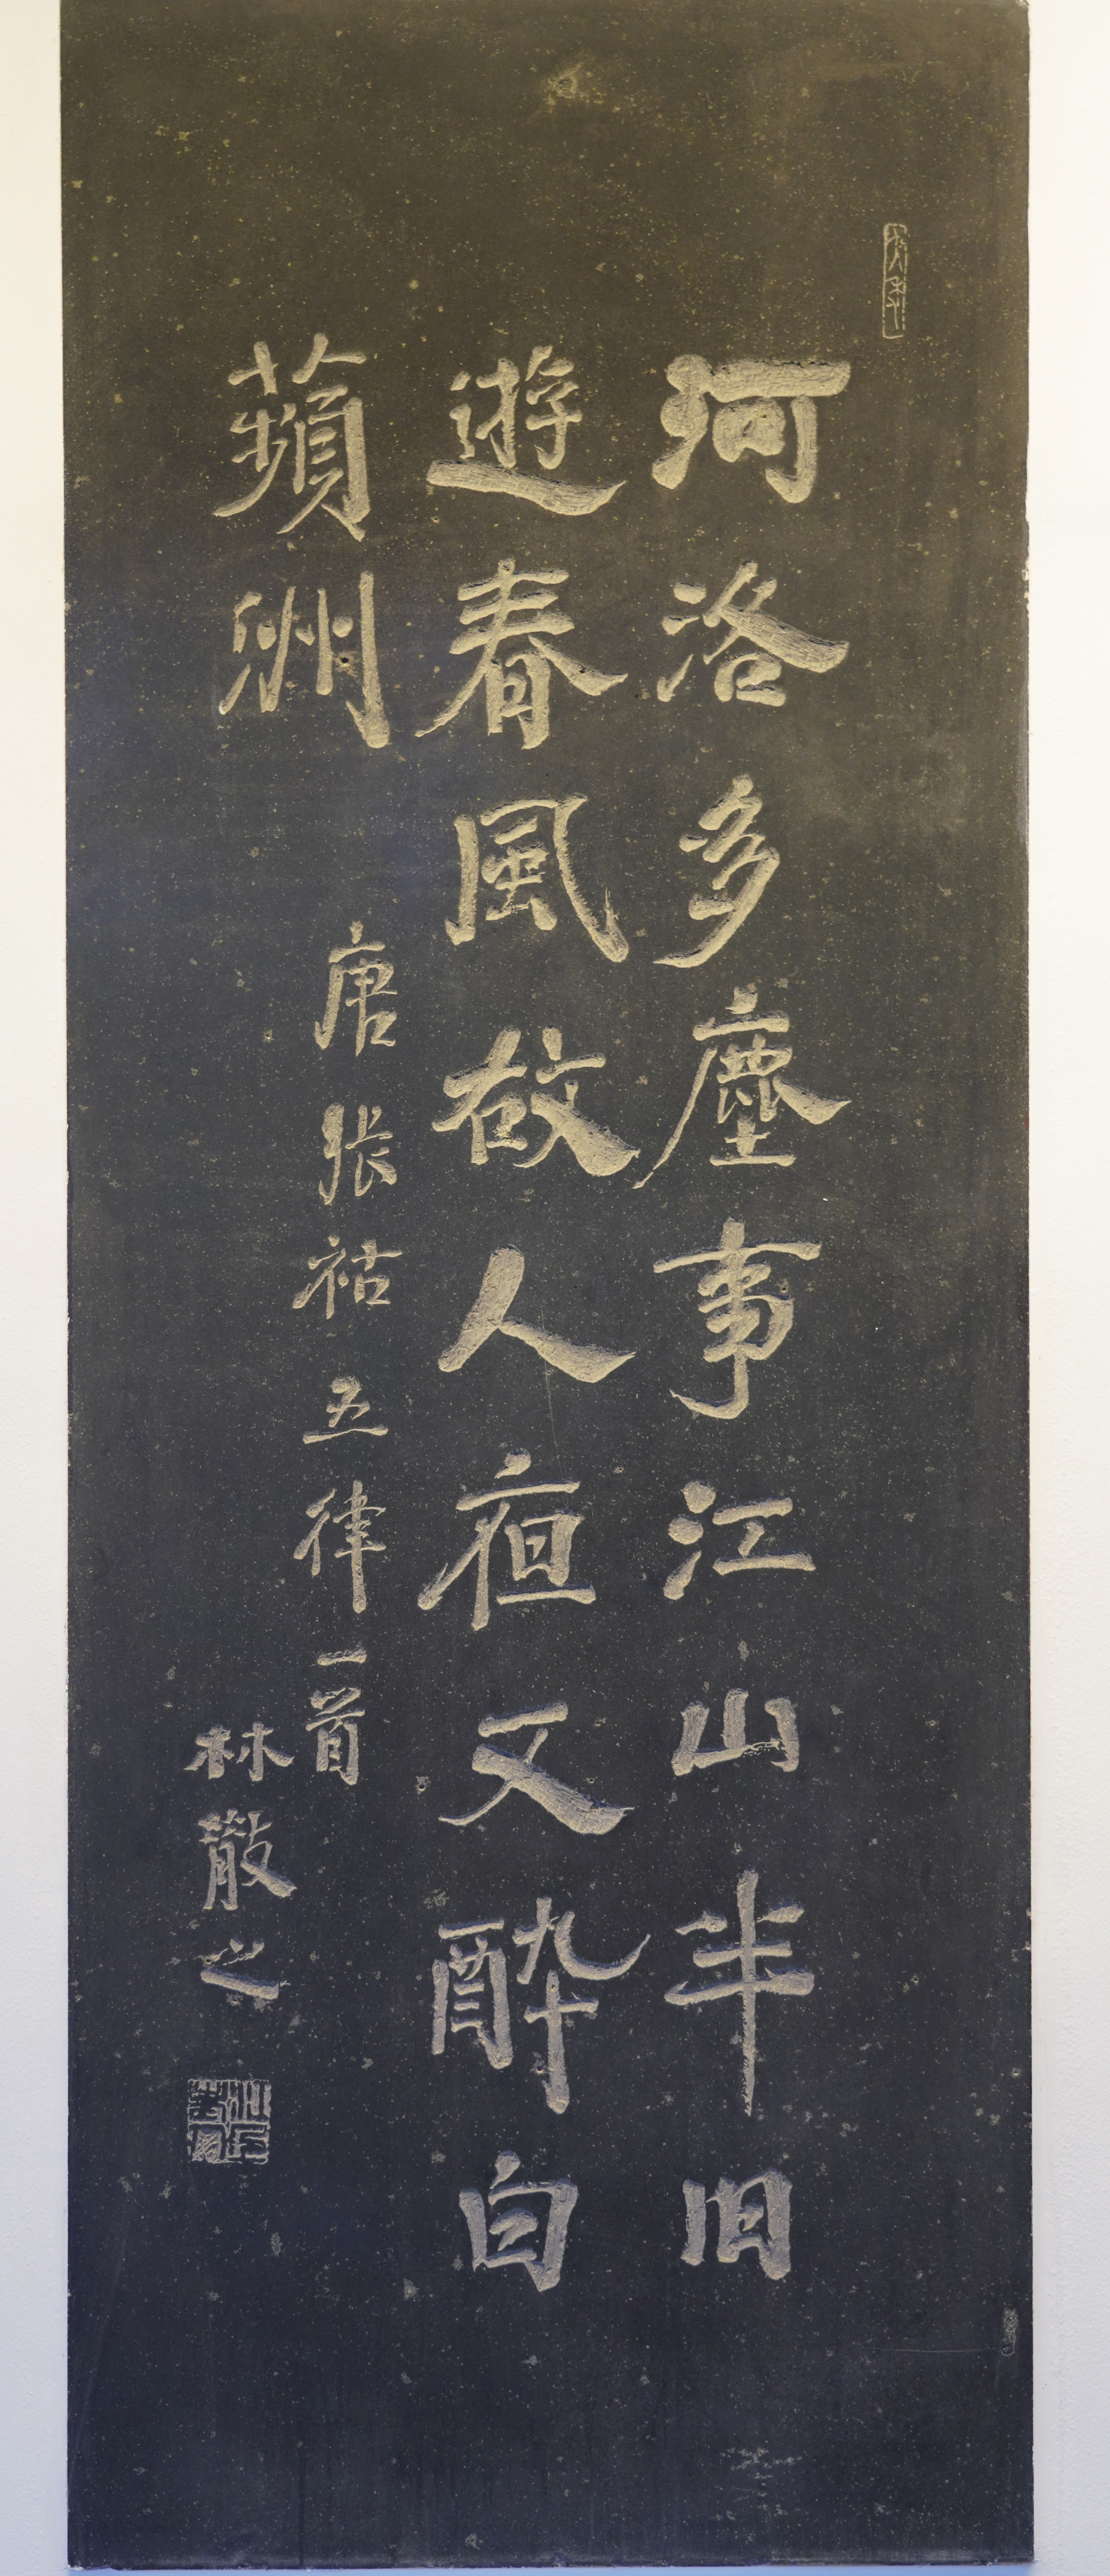 河洛多塵事江山半旧
遊春風故人夜又醉白
蘋洲
唐張祜五律一首
林散之